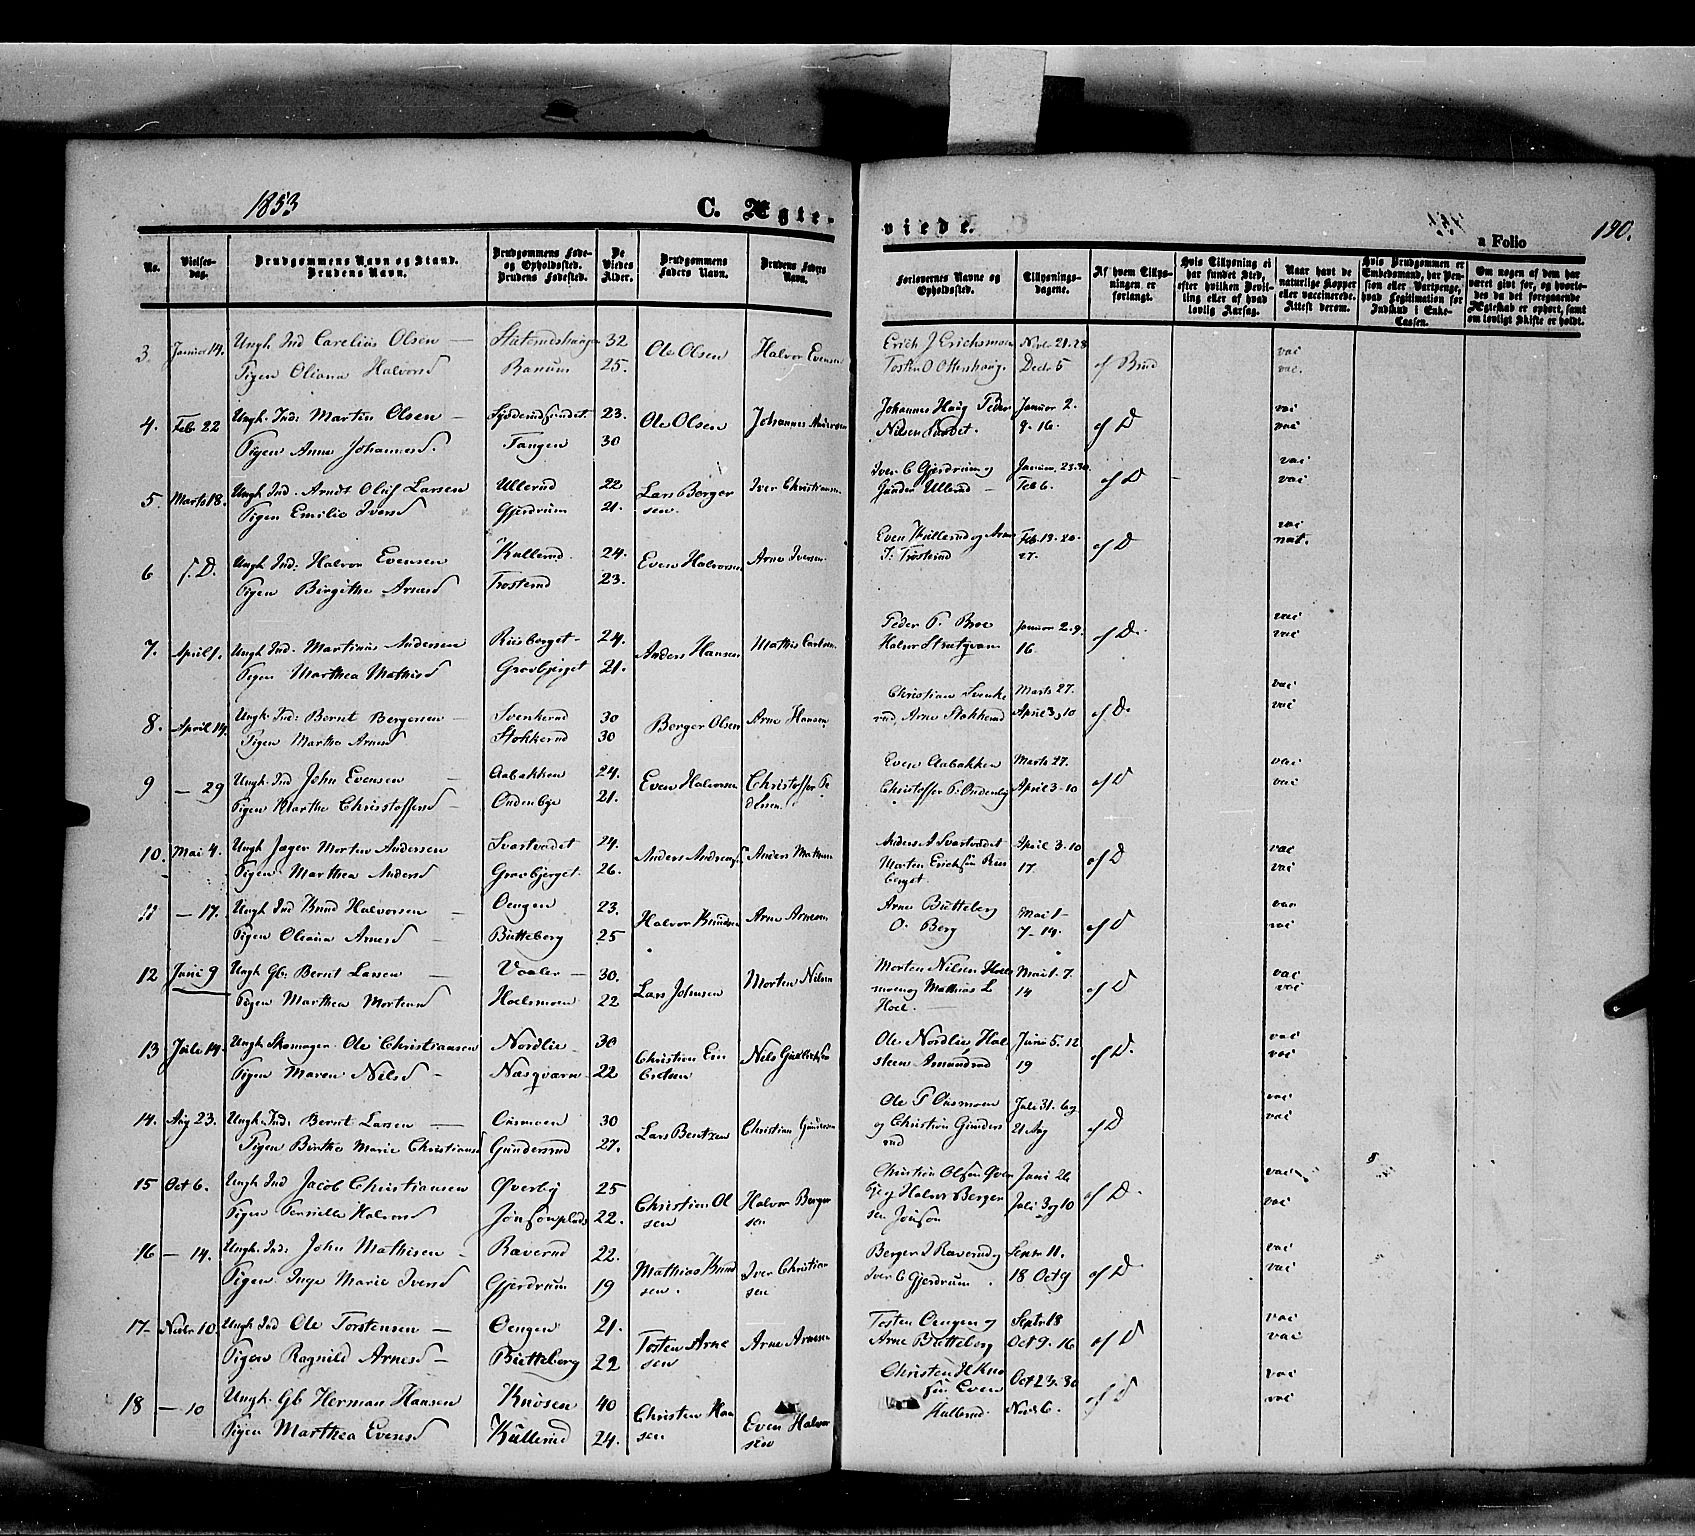 1853 C. Ægte- viede. a Folio 190.
No. Vielses-dag. Brudgommens Navn og Stand. Brudens Navn. Brudgommens Føde- og Opholdssted. Brudens Fødested. De Viedes Alder. Brudgommens Faders Navn. Brudens Faders Navn. Forlovernes Navne og Opholdssted. Tillysnings-dagene. Af hvem Tillysningen er forlangt. Hvis Tillysning ei har fundet Sted, efter hvilken Bevilling eller af hvad lovlig Aarsag. Naar havt de naturlige Kopper eller vaccinerede. Attest derom. Hvis Brudgommen er Embedsmand, har Pension eller Vartpenge, hvad Legitimation for Indskud i Enke-Cassen. Om nogen af dem har været givt før, og hvorledes da det foregaaende Ægteskab er ophørt, samt om lovligt Skifte er holdt.
3. Januar 14. Ungk. Ind Carelius Olsen — 32 Ole Olsen Halvor Evensen Erich J Erichsmoen Novbr 21. 28 af Brud vac
Pigen Oliana Halvorsd Ranum 25. Tosten O Ottershaug. Decbr 5 vac.
4. Febr 22 Ungk. Ind: Martin Olsen — 23. Ole Olsen Johannes Andersen Johannes Haug Peder Januar 2. af D vac
Pigen Anne Johannesd. Tangen 30 Nilsen 9. 16. vac
5. Marts 18. Ungk Ind. Arndt Oluf Larsen Ullerud 22 Lars Berger Iver Christiansen Iver C Gjerdrum og Januar. 23. 30. af D vac
Pigen Emilie Iversd Gjerdrum 21. sen. Gunder Ullerud — Feb 6. vac
6 s. D. Ungk Ind: Halvor Evensen Kullerud 24. Even Halvorsen Arne Iversen Even Kullerud og Arne Feb. 13. 20. af D vac
Pigen Birgithe Arnesd Trosterud 23. I: Trosterud 27. nat.
7. April 1. Ungk Ind: Martinus Andersen Riisberget 24. Anders Hansen Mathis Carlsen Peder P. Broe Januar 2. 9. af D. vac
Pigen Marthea Mathisd Gravbjerget 21. Halvor 16. vac
8. April 14. Ungk. Ind: Bernt Bergersen — Svenkerud 30 Berger Olsen Arne Hansen Christian Svenke Marts 27. af D. vac
Pigen Marthe Arnesd Stokkerud 30 rud, Arne Stokkerud April 3. 10 vac
9 — 29 Ungk. Ind John Evensen — Aabakken 24. Even Halvorsen Christoffer Pe Even Aabakken Marts 27. af D vac
Pigen Marthe Christoffersd — Ondenbye 21. dersen. Christoffer P. Ondenby April 3. 10 vac
10. Mai 4. Ungk Jæger Morten Andersen Svartvadet 24. Anders Andersen Anders Mathisen Anders A Svartvadet April 3. 10 af D vac
Pigen Marthea Andersd Gravbjerget. 26. Morten Erichsen Riis 17. vac
berget.
11 — 17. Ungk Ind Knud Halvorsen — Oengen 23. Halvor Knudsen Arne Arnesen Arne Butteberg Mai 1 - af D vac
Pigen Oliana Arnesd — Butteberg 25 O. Berg 7 - 14. vac
12 Juni 9 Ungk Gb: Bernt Larsen — Vaaler — 30. Lars Johnsen Morten Nilsen Morten Nilsen Hoels Mai 1. 7. af D vac
Pigen Marthea Mortensd Hoelsmoen 22 moen og Mathias L 14 vac
Hoel. —
13 Juli 14. Ungk Skomager Ole Christiansen Nordlie 30 Christian Em Nils Ole Nordlie Hal Juni 5. 12 af D. vac
Pigen Maren Nilsd — Næsqvarn 22 bretsen steen Amundrud 19 vac
14. Aug 23. Ungk. Ind: Bernt Larsen — Ousmoen 30 Lars Bentzen Christian Gundersen Ole P Ousmoen Juli 31. 6 og af D vac
Pigen Birthe Marie Christiansd Gundersrud 27. og Christian Gunders 21 Aug vac
rud
15 Oct 6. Ungk Ind Jacob Christiansen Øverby 25 Christian Ol Halvor Berger Christian Olsen Øver Juni 26 af D. vac
Pigen Pernille Halvorsd 22. sen sen bye og Halvor Berger Juli 3 og 10 vac
sen Jonson
16 — 14. Ungk. Ind: John Mathisen — Raverud 22. Mathias Knud Iver Christian Berger I Raverud og Septr 11. af D. vac
Pigen Inge Marie Iversd Gjerdrum 19 sen. sen Iver C Gjerdrum. 18 Oct 9 vac
17 — Novbr 10. Ungk Ind Ole Torstensen — Oengen 21. Tosten Arne Arne Arnesen Tosten Oengen og Septr 18 af D vac
Pigen Ragnild Arnesd — Butteberg 22 sen Arne Butteberg Oct 9. 16 vac
18 — 10 Ungk. Gb Herman Hansen Knosen 40 Christen Han Even Halvor Christen H Kno Oct 23. 30 af D vac
Pigen Marthea Evensd Kullerud 24. sen sen sen Even Novbr 6. vac
Kullerud.